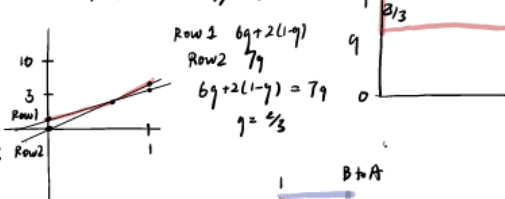 10
3
Row1
Row2
1
Row 1 6q+2(1-q)
Row2 7q
6q+2(1-q) = 7q
q = 2/3
2/3
q
0
1
B to A